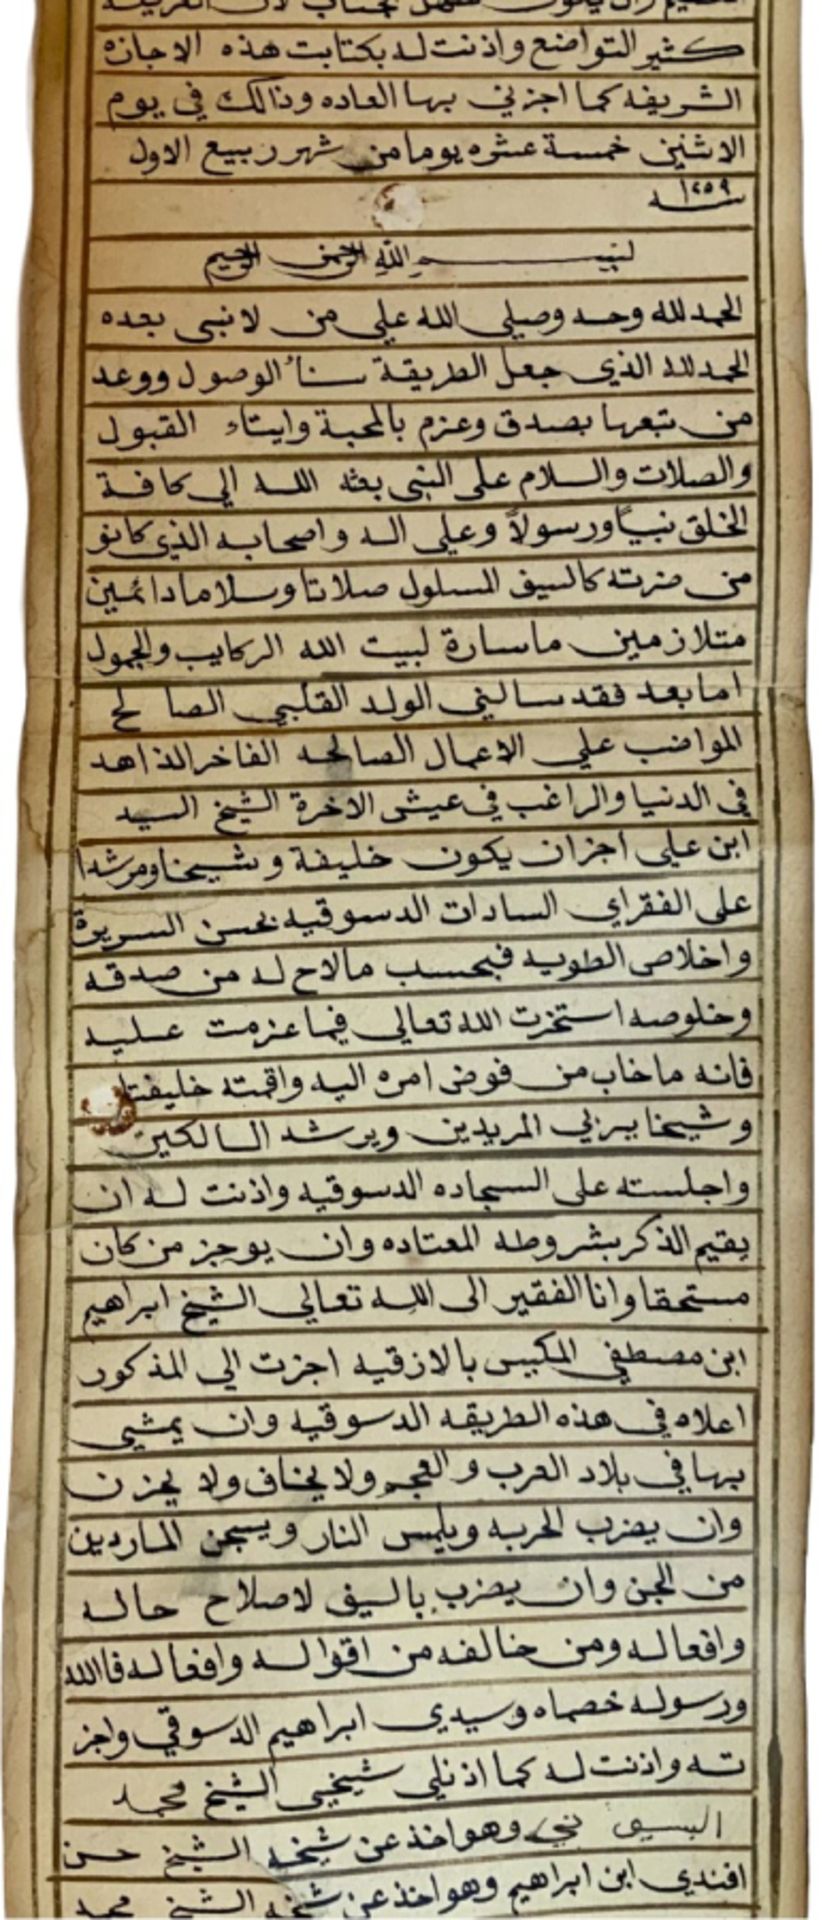 كثير التواضع واذنت له بكتابت هذه الاجازه
الشريفه كما اجزني بها العاده وذالك في يوم
الاثنين خمسة عشره يوما من شهر ربيع الاول
سنه ١٢٥٩
بسم الله الرحمن الرحيم
الحمد لله وحد وصلي الله علي من لا نبي بعده
الحمد لله الذي جعل الطريقة سناً الوصول ووعد
من تبعها بصدق وعزم بالمحبة وايتاء القبول
والصلات والسلام على النبي بعثه الله الي كافة
الخلق نبياً ورسولاً وعلي اله واصحابه الذي كانو
من ضرته كالسيف المسلول صلاتا وسلاما دائمين
متلازمين ماسارة لبيت الله الركايب والجمول
اما بعد فقد سالني الولد القلبي الصالح
المواضب علي الاعمال الصالحه الفاخر الذاهد
في الدنيا والراغب في عيش الاخرة الشيخ السيد
ابن علي اجزان يكون خليفة وشيخا ومرشدا
على الفقراي السادات الدسوقيه بحسن السريرة
واخلاص الطويه فبحسب مالاح له من صدقه
وخلوصه استخرت الله تعالي فيما عزمت عليه
فانه ماخاب من فوض امره اليه واقمته خليفتا
وشيخا يربي المريدين ويرشد السالكين
واجلسته على السجاده الدسوقيه واذنت له ان
يقيم الذكر بشروطه المعتاده وان يوجز من كان
مستحقا وانا الفقير الى الله تعالي الشيخ ابراهيم
ابن مصطفي المكيس بالازقيه اجزت الي المذكور
اعلاه في هذه الطريقه الدسوقيه وان يمشي
بها في بلاد العرب والعجم ولا يخاف ولا يحزن
وان يضرب الحربه ويلمس النار ويسجن الماردين
من الجن وان يضرب بالسيف لاصلاح حاله
وافعاله ومن خالفه من اقواله وافعاله فالله
ورسوله خصماه وسيدي ابراهيم الدسوقي واجز
ته واذنت له كما اذنلي شيخي الشيخ محمد
وهو اخذ عن شيخه الشيخ حسن
افندي ابن ابراهيم وهو اخذ عن شيخه الشيخ محمد